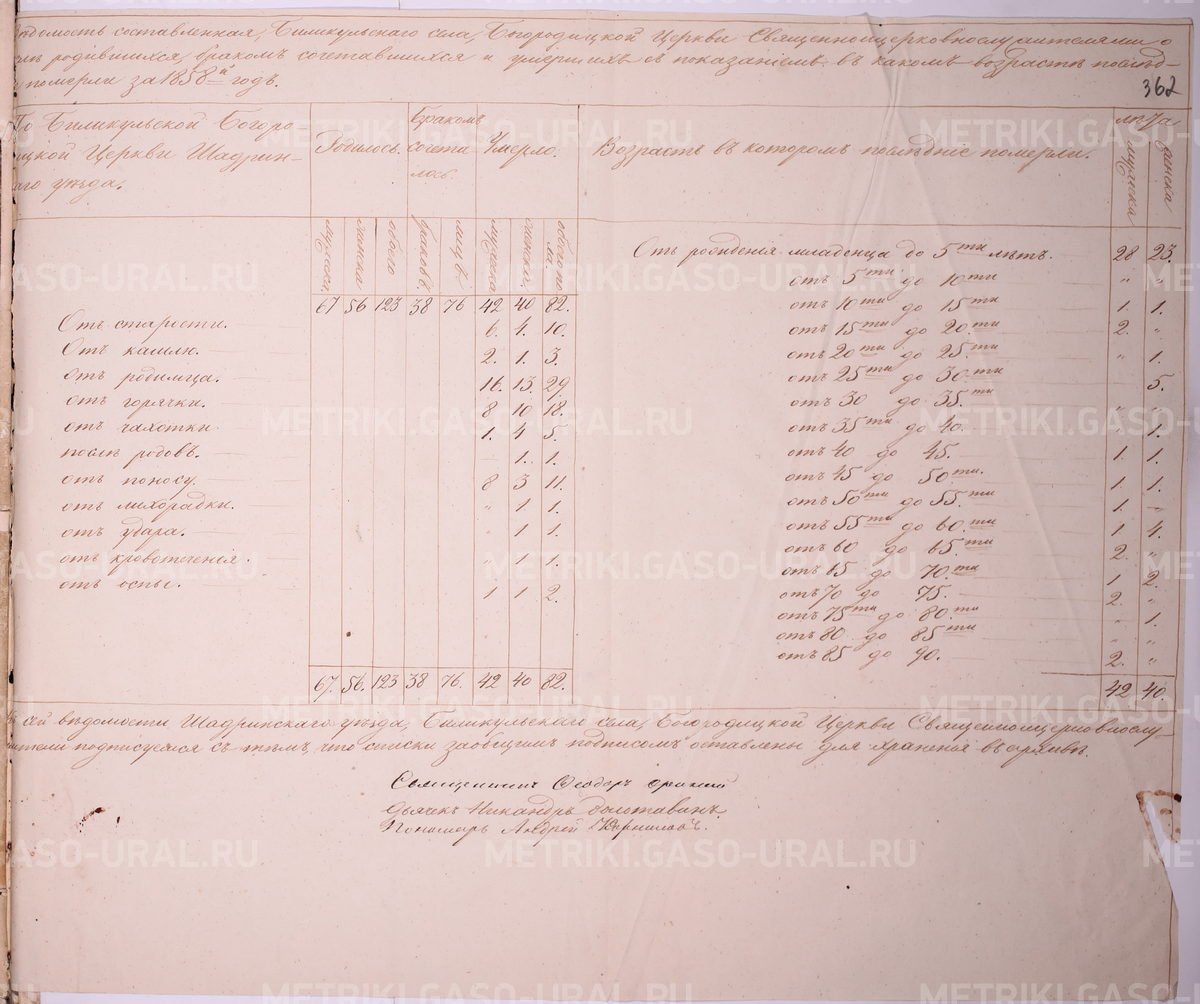 Вѣдомость составленная, Биликульскаго села, Богородицкой Церкви Священноицерковнослужителями о
родившихся, бракомъ сочетавшихся и умершихъ съ показаніемъ въ какомъ возрастѣ послѣд-
померли за 1858й годъ.
362
По Биликульской Богоро-
дицкой Церкви Шадрин-
скаго уѣзда.
Родилось.
Бракомъ
сочета
лось.
Умерло.
Возрастъ въ которомъ послѣдніе померли.
мужеска
женска
обоего
браковъ.
лицъ.
мужеска
женска
обоего по
ла
мужеска
женска
67 56 123 38 76 42 40 82.
Отъ старости. 6. 4. 10.
Отъ кашлю. 2. 1. 3.
отъ родимца. 16. 13. 29
отъ горячки. 8 10 18.
отъ чахотки 1. 4 5.
послѣ родовъ. 1. 1.
отъ поносу. 8 3 11.
отъ лихорадки. " 1 1.
отъ удара. " 1 1.
отъ кровотеченія. " 1 1.
отъ оспы. 1 1 2.
67. 56. 123 38 76. 42 40 82.
Отъ рожденія младенца до 5ти лѣтъ. 28 23.
отъ 5ти до 10ти " "
отъ 10ти до 15ти 1. 1.
отъ 15ти до 20ти 2. "
отъ 20ти до 25ти " 1.
отъ 25ти до 30ти 5.
отъ 30 до 35ти " "
отъ 35ти до 40. 1.
отъ 40 до 45. 1. 1.
отъ 45 до 50ти. 1. 1.
отъ 50ти до 55ти 1. "
отъ 55ти до 60ти 1 4.
отъ 60 до 65ти 2. "
отъ 65 до 70ти 1 2.
отъ 70 до 75. 2. "
отъ 75ти до 80ти " 1.
отъ 80 до 85ти " "
отъ 85 до 90. 2. "
42 40.
сей вѣдомости Шадринскаго уѣзда, Биликульскаго села, Богородицкой Церкви Священноицерковнослу-
жители подписуемся съ тѣмъ, что списки заобщимъ подписомъ оставлены для храненія въ архивѣ.
Священникъ Ѳеодоръ
Дьячекъ Никандръ
Пономарь Андрей
METRIKI.GASO-URAL.RU